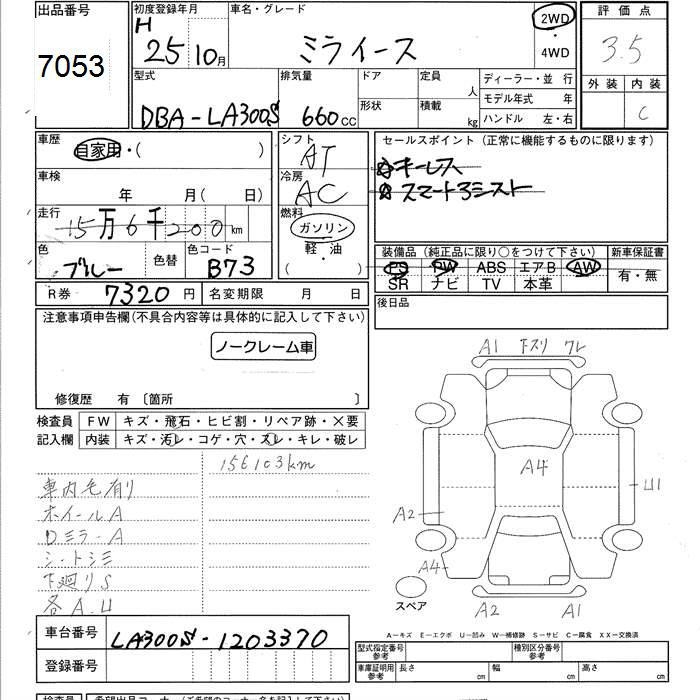 出品番号
7053
初度登録年月
H
25 10月
車名・グレード
ミライース
2WD
・
4WD
評価点
3.5
外装 内装
C
型式
DBA-LA300S
排気量
660cc
ドア
形状
定員
人
積載
kg
ディーラー・並 行
モデル年式 年
ハンドル 左・右
車歴
自家用・( )
車検
年 月( 日)
走行
15万6千200km
色
ブルー
色替
色コード
B73
シフト
AT
冷房
AC
燃料
ガソリン
軽・油
( )
セールスポイント(正常に機能するものに限ります)
キーレス
装備品(純正品に限り○をつけて下さい)
PS PW ABS エアB AW
SR ナビ TV 本革
新車保証書
有・無
R券 7320円
名変期限 月 日
後日品
注意事項申告欄(不具合内容等は具体的に記入して下さい)
ノークレーム車
修復歴 有〔箇所 〕
検査員
記入欄
FW キズ・飛石・ヒビ割・リペア跡・×要
内装 キズ・汚レ・コゲ・穴・スレ・キレ・破レ
156103km
車内毛有り
ホイールA
Dミラ-A
シートシミ
下廻りS
各A.U
A1 下スリ ワレ
A4
A2
U1
A4
スペア
A2
A1
A-キズ E-エクボ U-凹み W-補修跡 S-サビ C-腐食 XX-交換済
車台番号
LA300S-1203370
登録番号
型式指定番号
参考
種別区分番号
参考
車庫証明用
参考
長さ cm
幅 cm
高さ cm